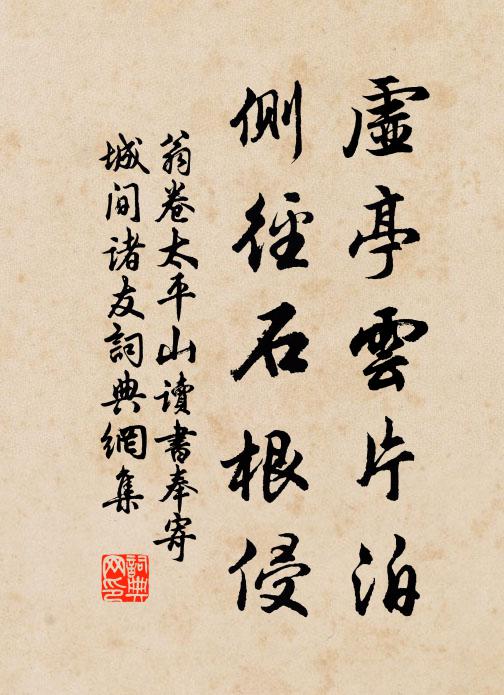 虛亭雲片泊
側徑石根侵
翁卷太平山讀書奉寄
城間諸友詞典網集
詞典网印